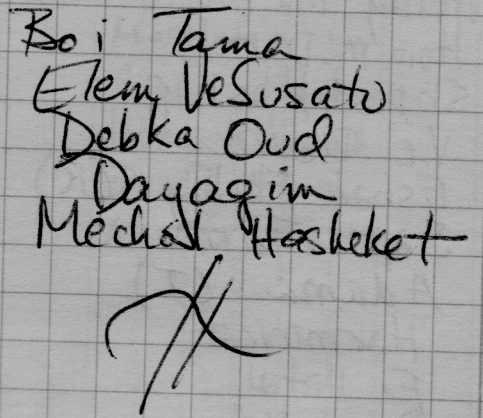 Boi Tama
Elem VeSusato
Debka Oud
Dayagim
Mechol Hasheket